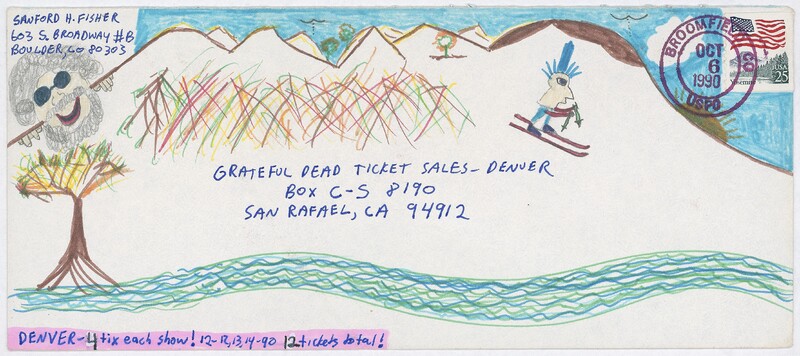 SANFORD H. FISHER
603 S. BROADWAY #B
BOULDER, CO 80303
BROOMFIELD CO
OCT
6
1990
USPO
USA
25
Yosemite
GRATEFUL DEAD TICKET SALES - DENVER
BOX C-S 8190
SAN RAFAEL, CA 94912
DENVER - 4 tix each show! 12-12,13,14-90 12 tickets total!